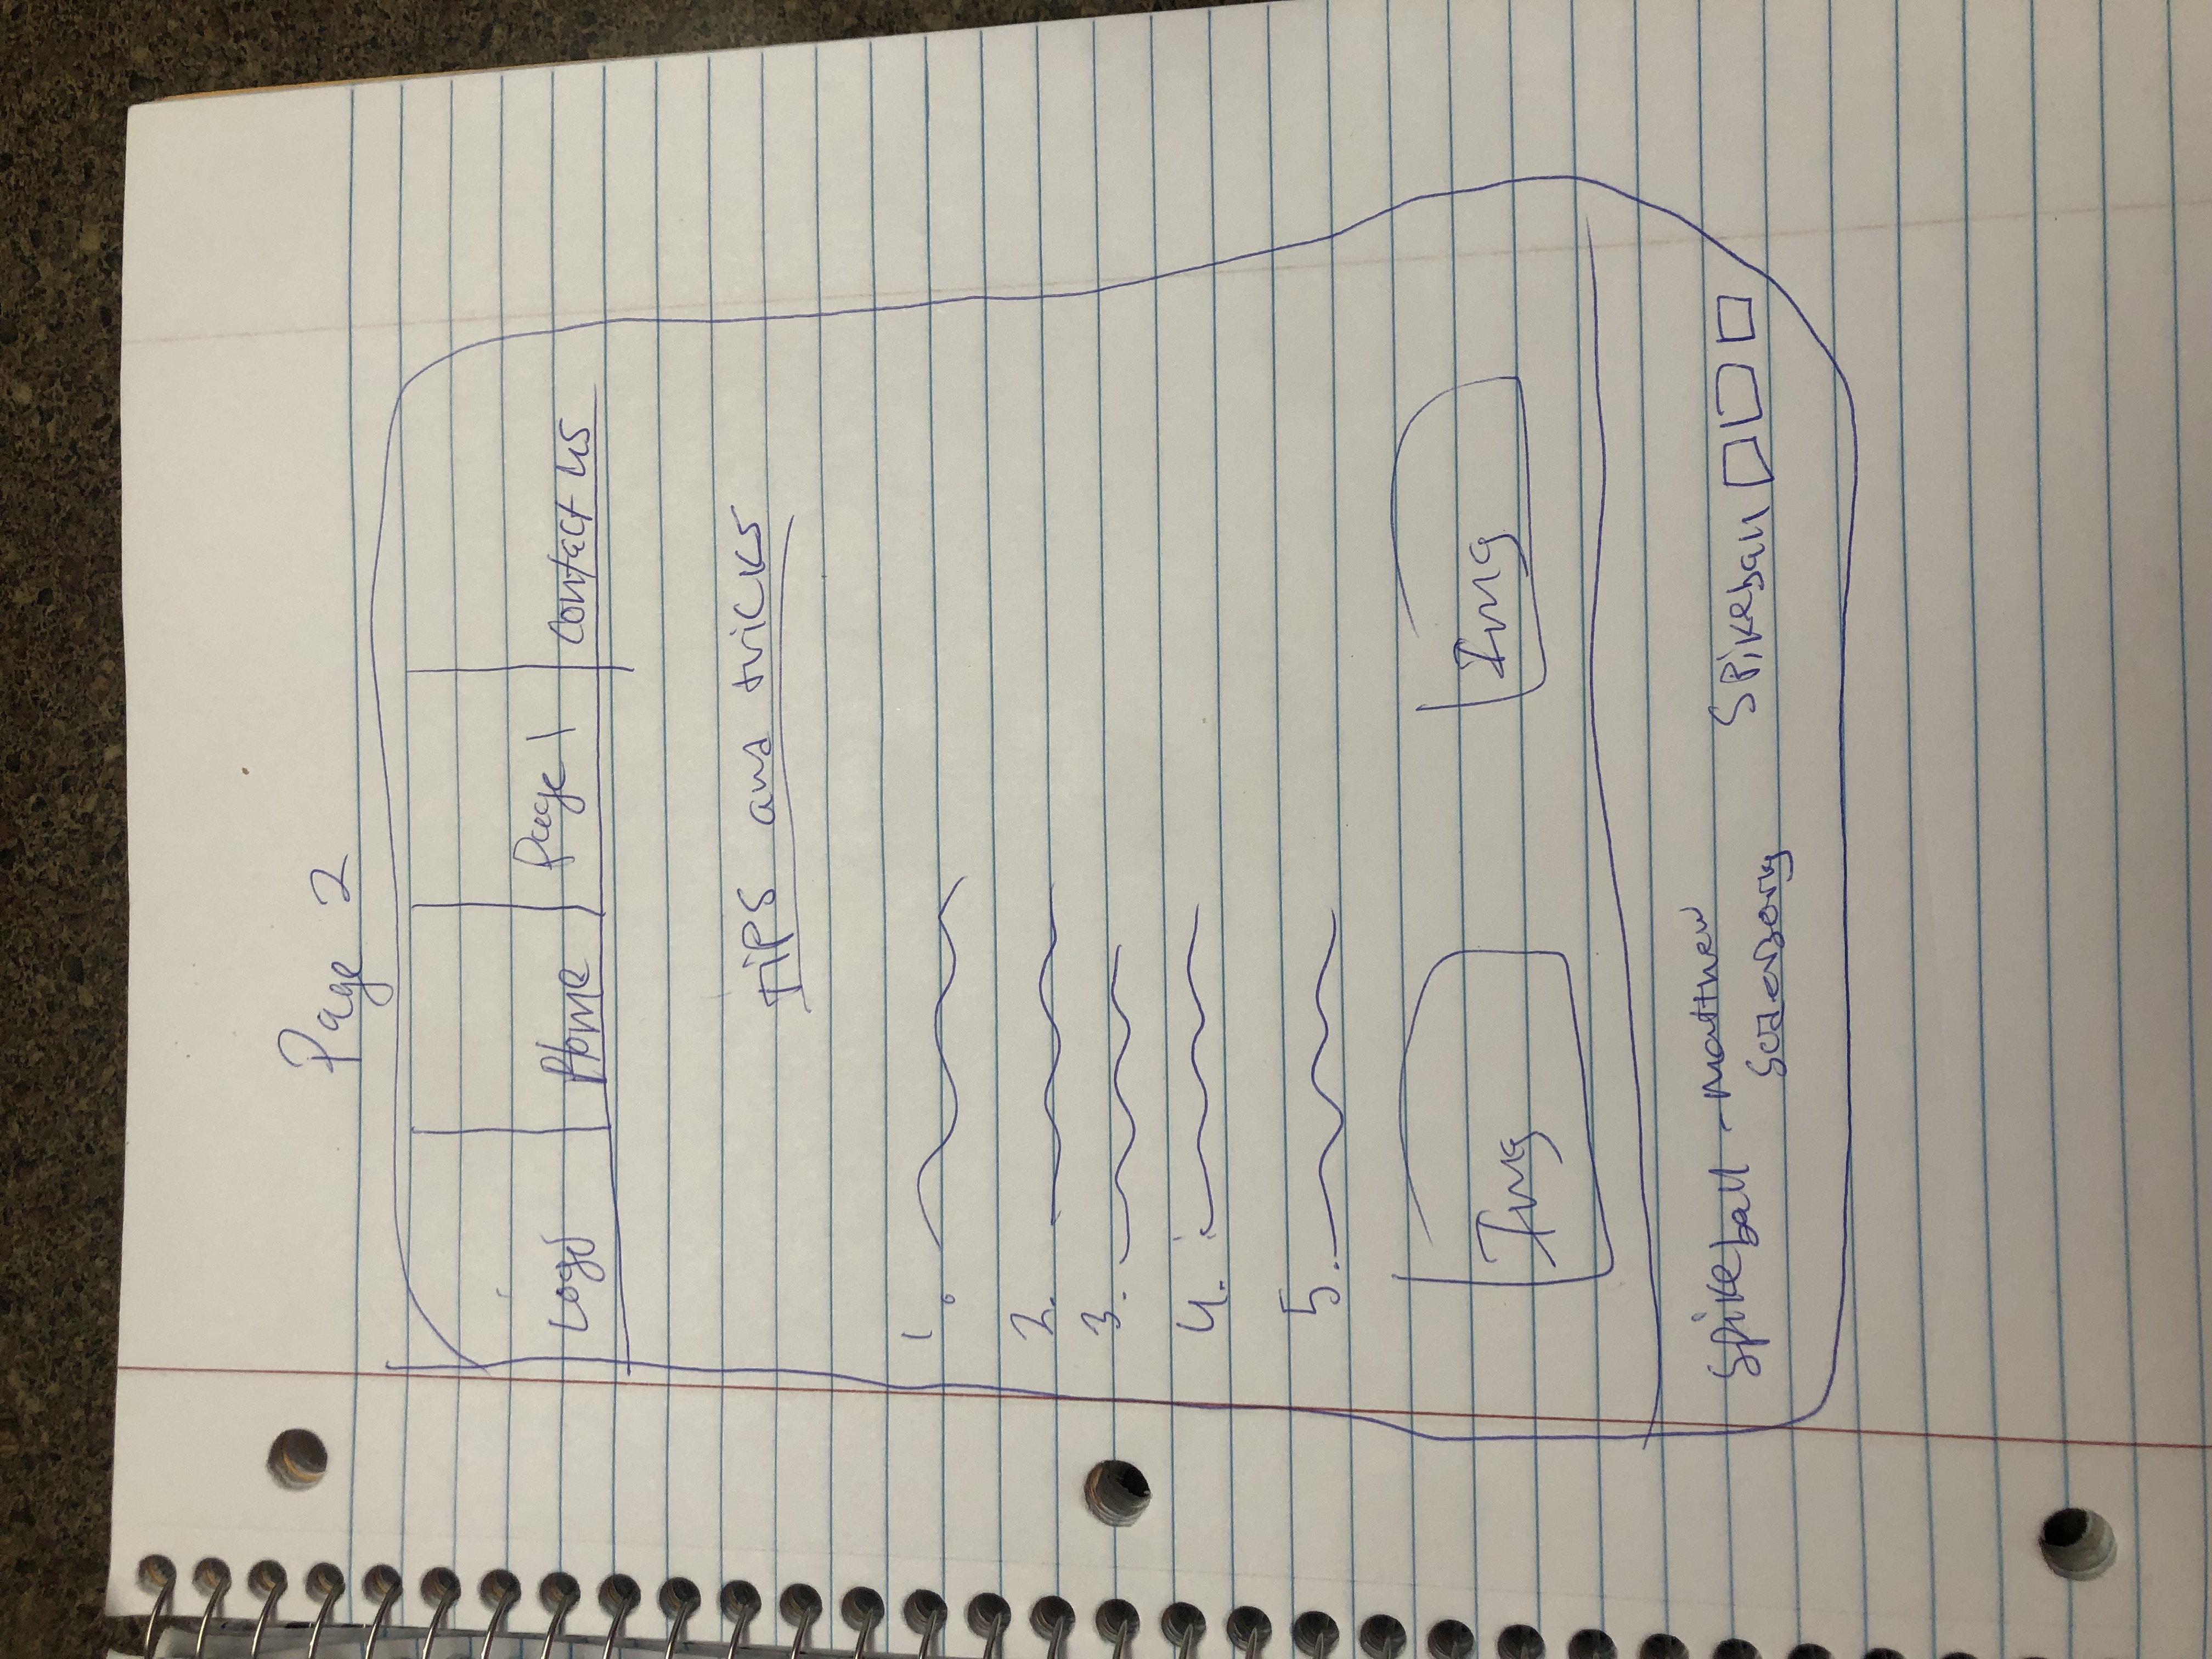 Page 2
Logo Home Page 1 Contact us
Tips and tricks
1.
2.
3.
4.
5.
Img Img
Spikeball - Matthew Spikeball